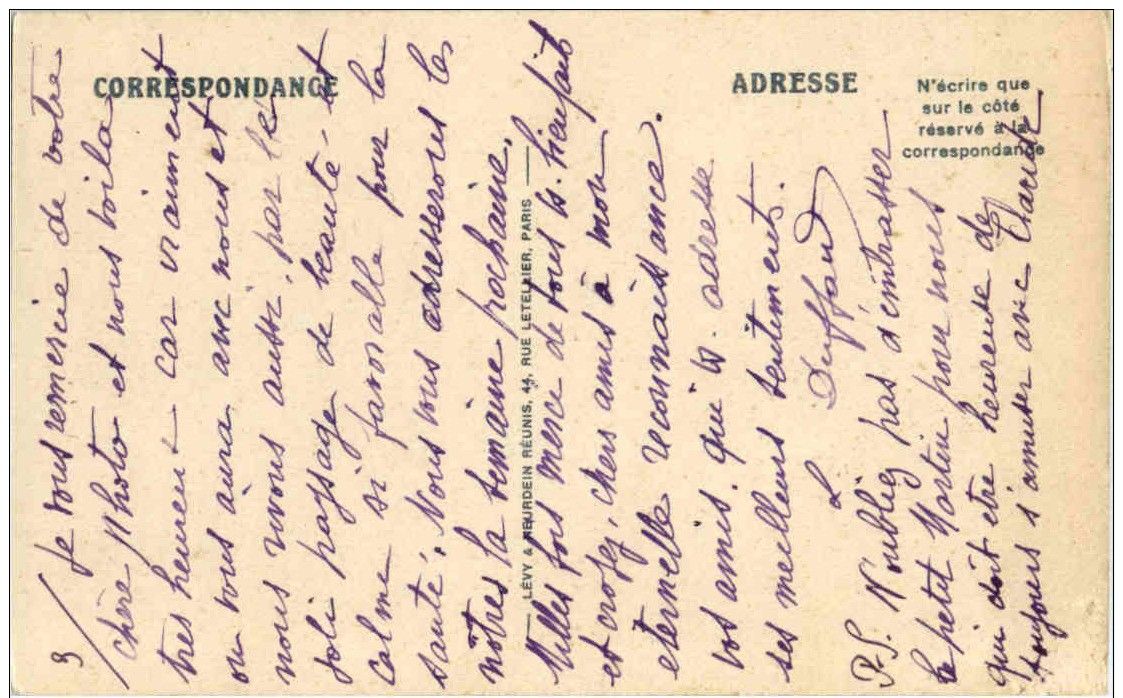 CORRESPONDANCE
ADRESSE
N'écrire que
sur le côté
réservé à la
correspondance
LÉVY & NEURDEIN RÉUNIS, 44, RUE LETELLIER, PARIS
3/ Je vous remercie de votre
chère Photo et nous voila
très heureux car vraiment
on vous aura avec nous et
nous vivons aussi, par le
joli paysage de beauté et
calme si favorable pour la
santé. Nous vous adresserons les
nôtres la semaine prochaine.
Milles fous merce de tous vs. bienfaits
et croyez, chers amis à mon
éternelle reconnaissance.
vos amis. qui vs. adresse
ses meilleurs sentiments.
L. Duffaud
P.S. N'oubliez pas d'embrasser
le petit Martin pour nous
qui doit être heureuse de
toujours s'amuser avec